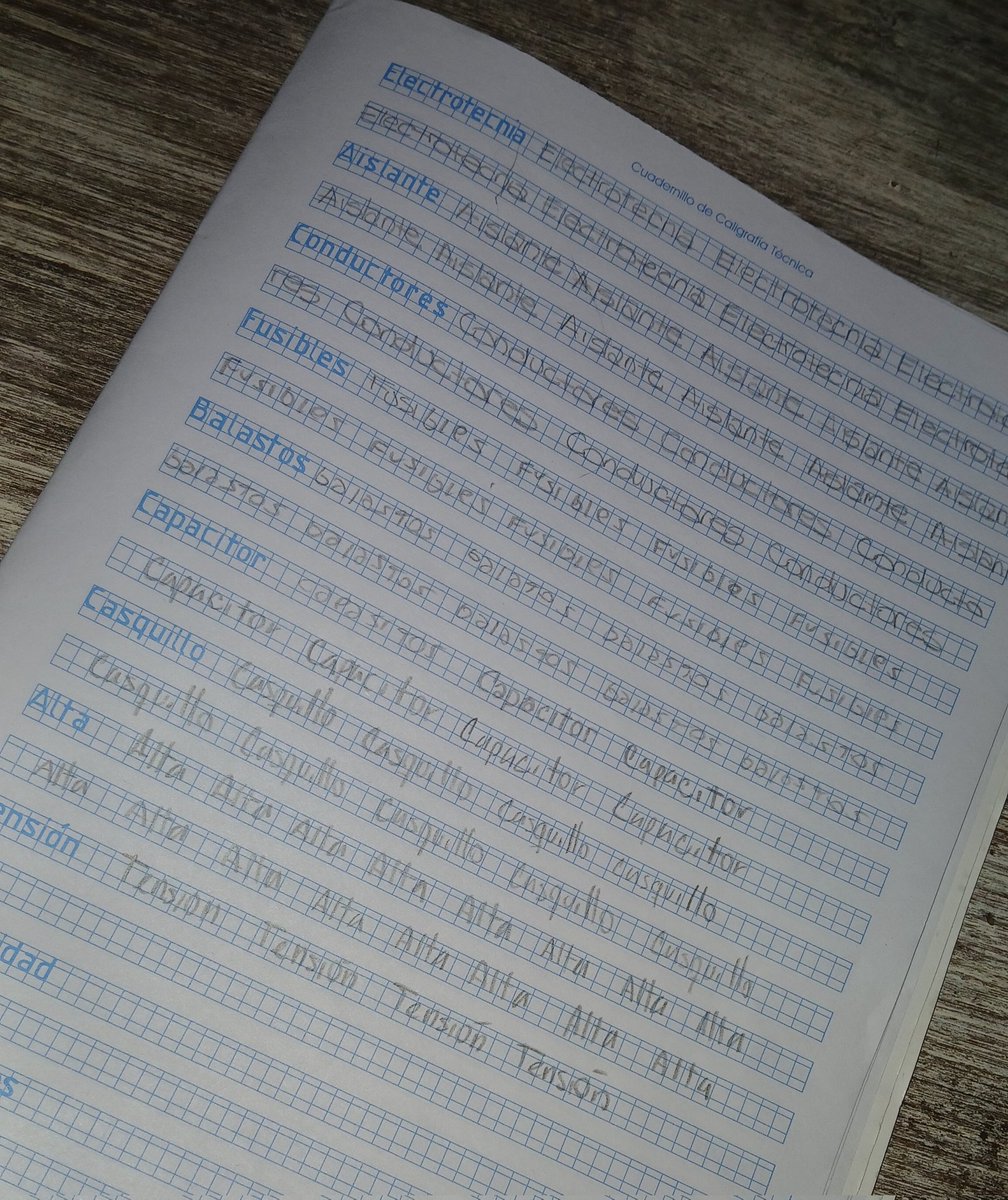 Cuadernillo de Caligrafía Técnica
Electrotecnia Electrotecnia Electrotecnia Electro
Electrotecnia Electrotecnia Electrotecnia Electrote
Aislante Aislante Aislante Aislante Aislante Aislan
Aislante Aislante Aislante Aislante Aislante Aislan
Conductores Conductores Conductores Conducto
res Conductores Conductores Conductores
Fusibles Fusibles Fusibles Fusibles Fusibles
Fusibles Fusibles Fusibles Fusibles Fusibles
Balastos balastos balastos balastos balastos
balastos balastos balastos balastos balastos
Capacitor Capacitor Capacitor
Capacitor Capacitor Capacitor Capacitor
Casquillo Casquillo Casquillo Casquillo casquillo
Casquillo Casquillo Casquillo Casquillo Casquillo
Alta Alta Alta Alta Alta Alta Alta Alta Alta
Alta Alta Alta Alta Alta Alta Alta Alta
ensión Tensión Tensión Tensión Tensión
idad
s